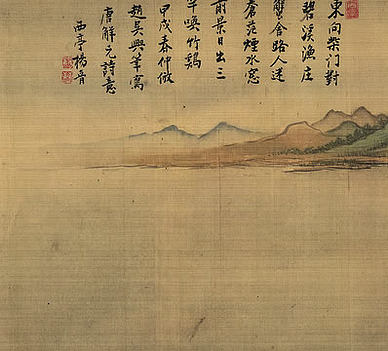 東向柴門對
碧溪漁庄
蟹舍路人迷
蒼茫煙水窓
前景日出三
竿喚竹鷄
甲戌春仲倣
趙吳興筆寓
唐解元詩意
西亭楊晉